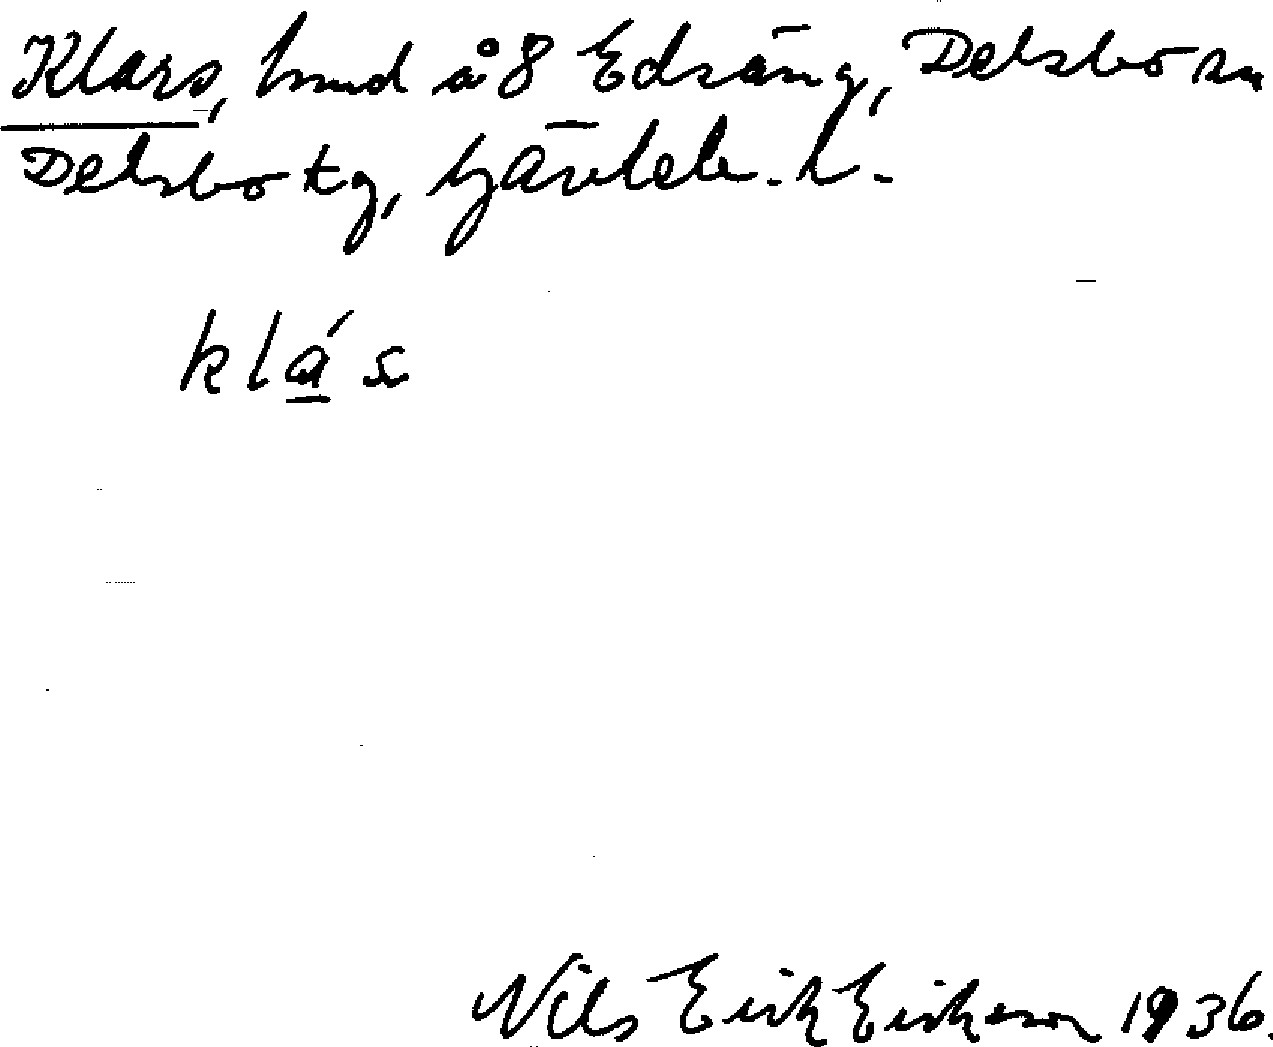 Klars, hmd å 8 Edsäng, Delsbo sn
Delsbo tg, Gävleb. l.
klás
Nils Erik Eriksson 1936.